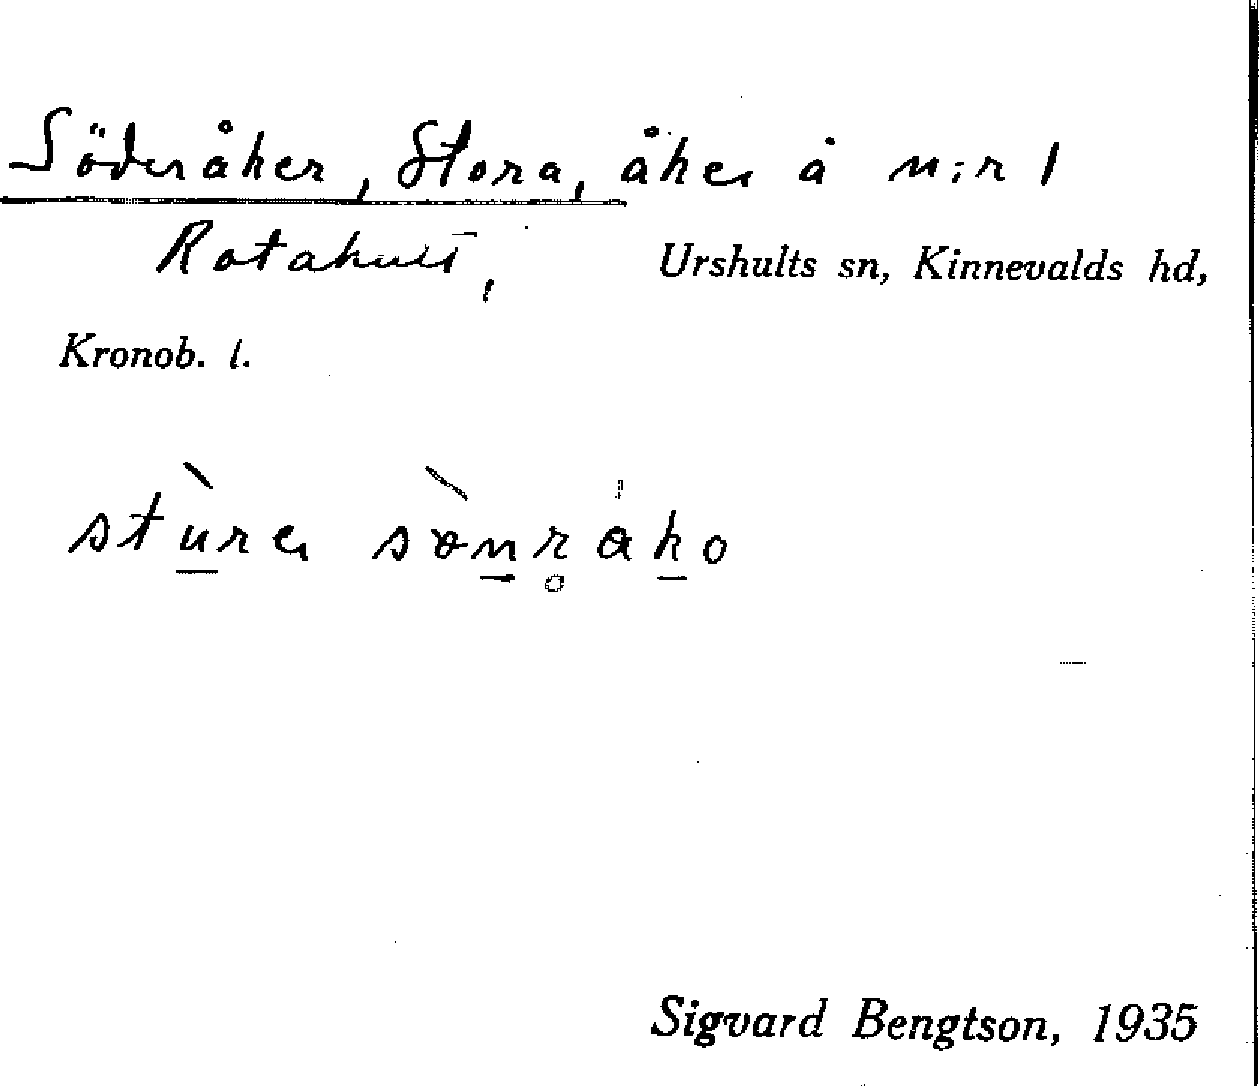 Söderåker, Stora, åker å n:r 1
Rotahult, Urshults sn, Kinnevalds hd,
Kronob. l.
Sigvard Bengtson, 1935